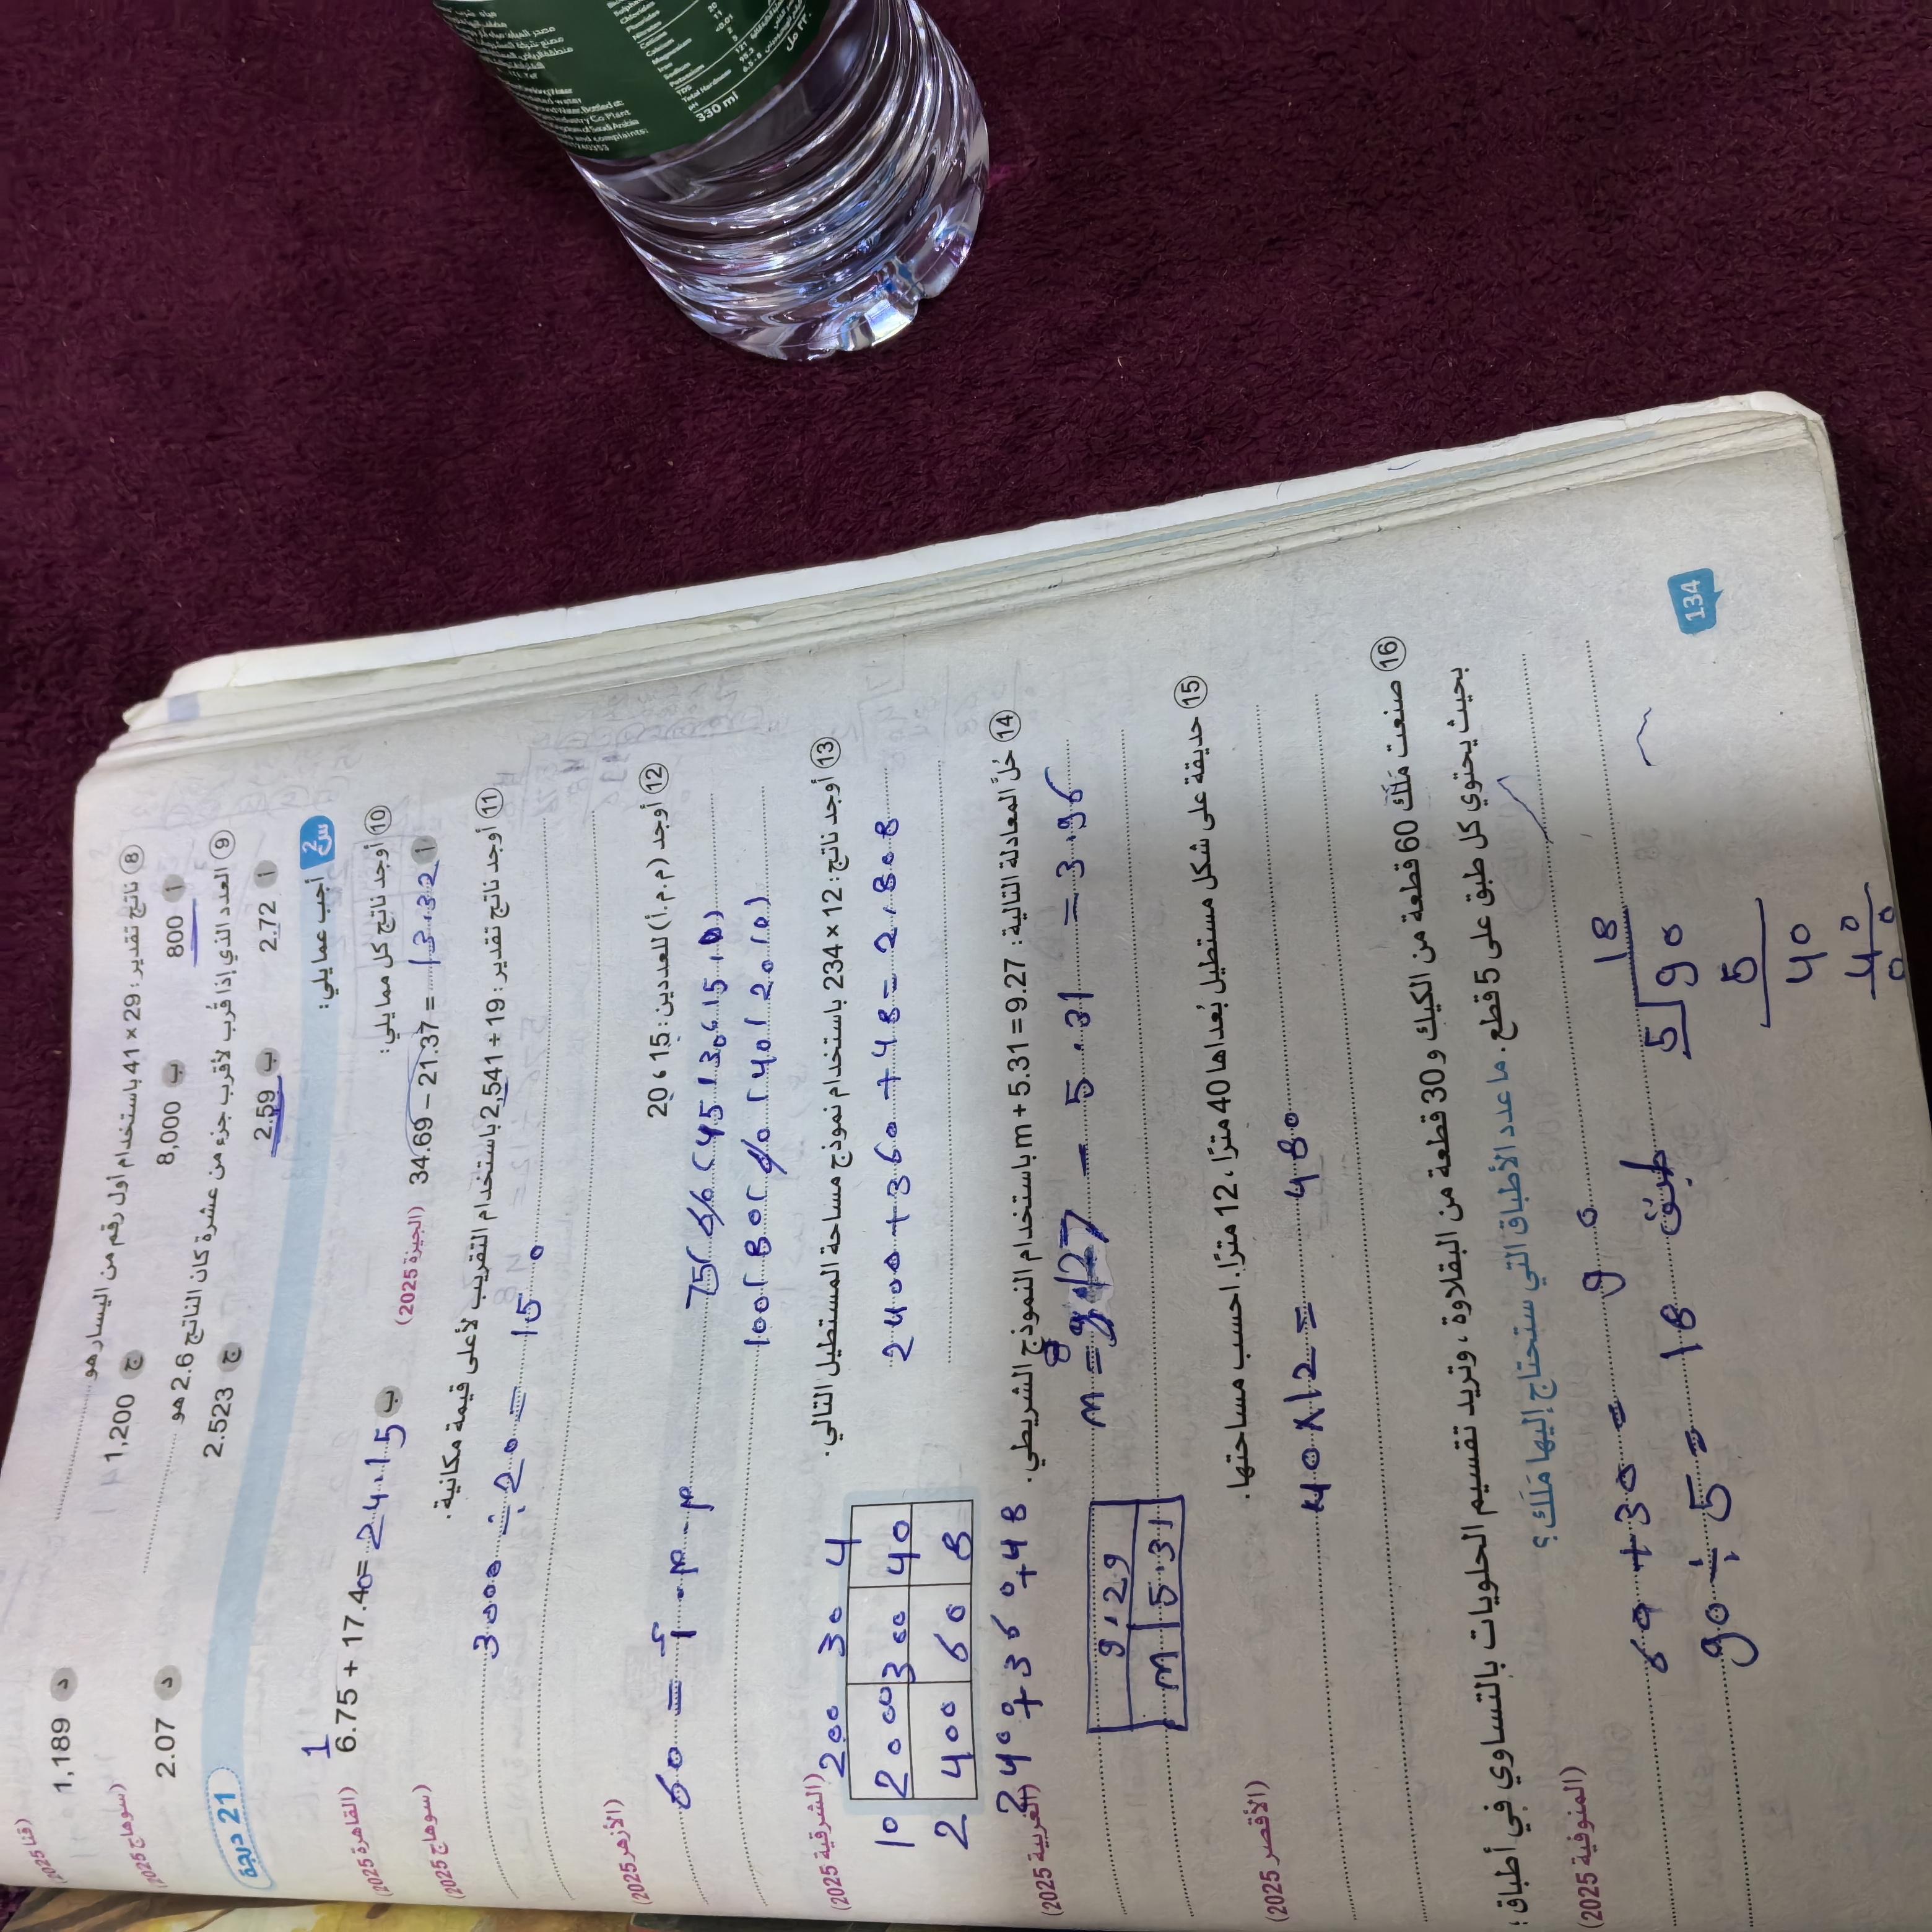 ⑧ ناتج تقدير : 29 × 41 باستخدام أول رقم من اليسار هو
أ 800 ب 8,000 ج 1,200 د 1,189 (قنا 2025)
⑨ العدد الذي إذا قُرب لأقرب جزء من عشرة كان الناتج 2.6 هو (سوهاج 2025)
أ 2.72 ب 2.59 ج 2.523 د 2.07
س2 أجب عما يلي : 21 درجة
⑩ أوجد ناتج كل مما يلي :
أ 34.69 – 21.37 = 13.32 (الجيزة 2025) ب 6.75 + 17.40 = 24.15 (القاهرة 2025)
1
⑪ أوجد ناتج تقدير : 19 ÷ 2,541 باستخدام التقريب لأعلى قيمة مكانية . (سوهاج 2025)
3000 ÷ 20 = 150
⑫ أوجد (م.م.أ) للعددين : 15 ، 20 (الأزهر 2025)
75 ( 60 ( 45 ( 30 ( 15 ( 0 )
60 = م.م.أ
100 ( 80 ( 60 ( 40 ( 20 ( 0 )
⑬ أوجد ناتج : 12 × 234 باستخدام نموذج مساحة المستطيل التالي . (الشرقية 2025)
200 30 4
10 2000 300 40
2 400 60 8
2400 + 360 + 48 = 2,808
2400 + 360 + 48
⑭ حُل المعادلة التالية : m + 5.31 = 9.27 باستخدام النموذج الشريطي . (الغربية 2025)
m = 9.27 – 5.31 = 3.96
9.29
m 5.31
⑮ حديقة على شكل مستطيل بُعداها 40 مترًا ، 12 مترًا . احسب مساحتها . (الأقصر 2025)
40 × 12 = 480
⑯ صنعت مَلَك 60 قطعة من الكيك و 30 قطعة من البقلاوة ، وتريد تقسيم الحلويات بالتساوي في أطباق ؛
بحيث يحتوي كل طبق على 5 قطع . ما عدد الأطباق التي ستحتاج إليها مَلَك ؟ (المنوفية 2025)
60 + 30 = 90
90 ÷ 5 = 18 طبق
18
5 90
5
40
40
00
134
330 ml